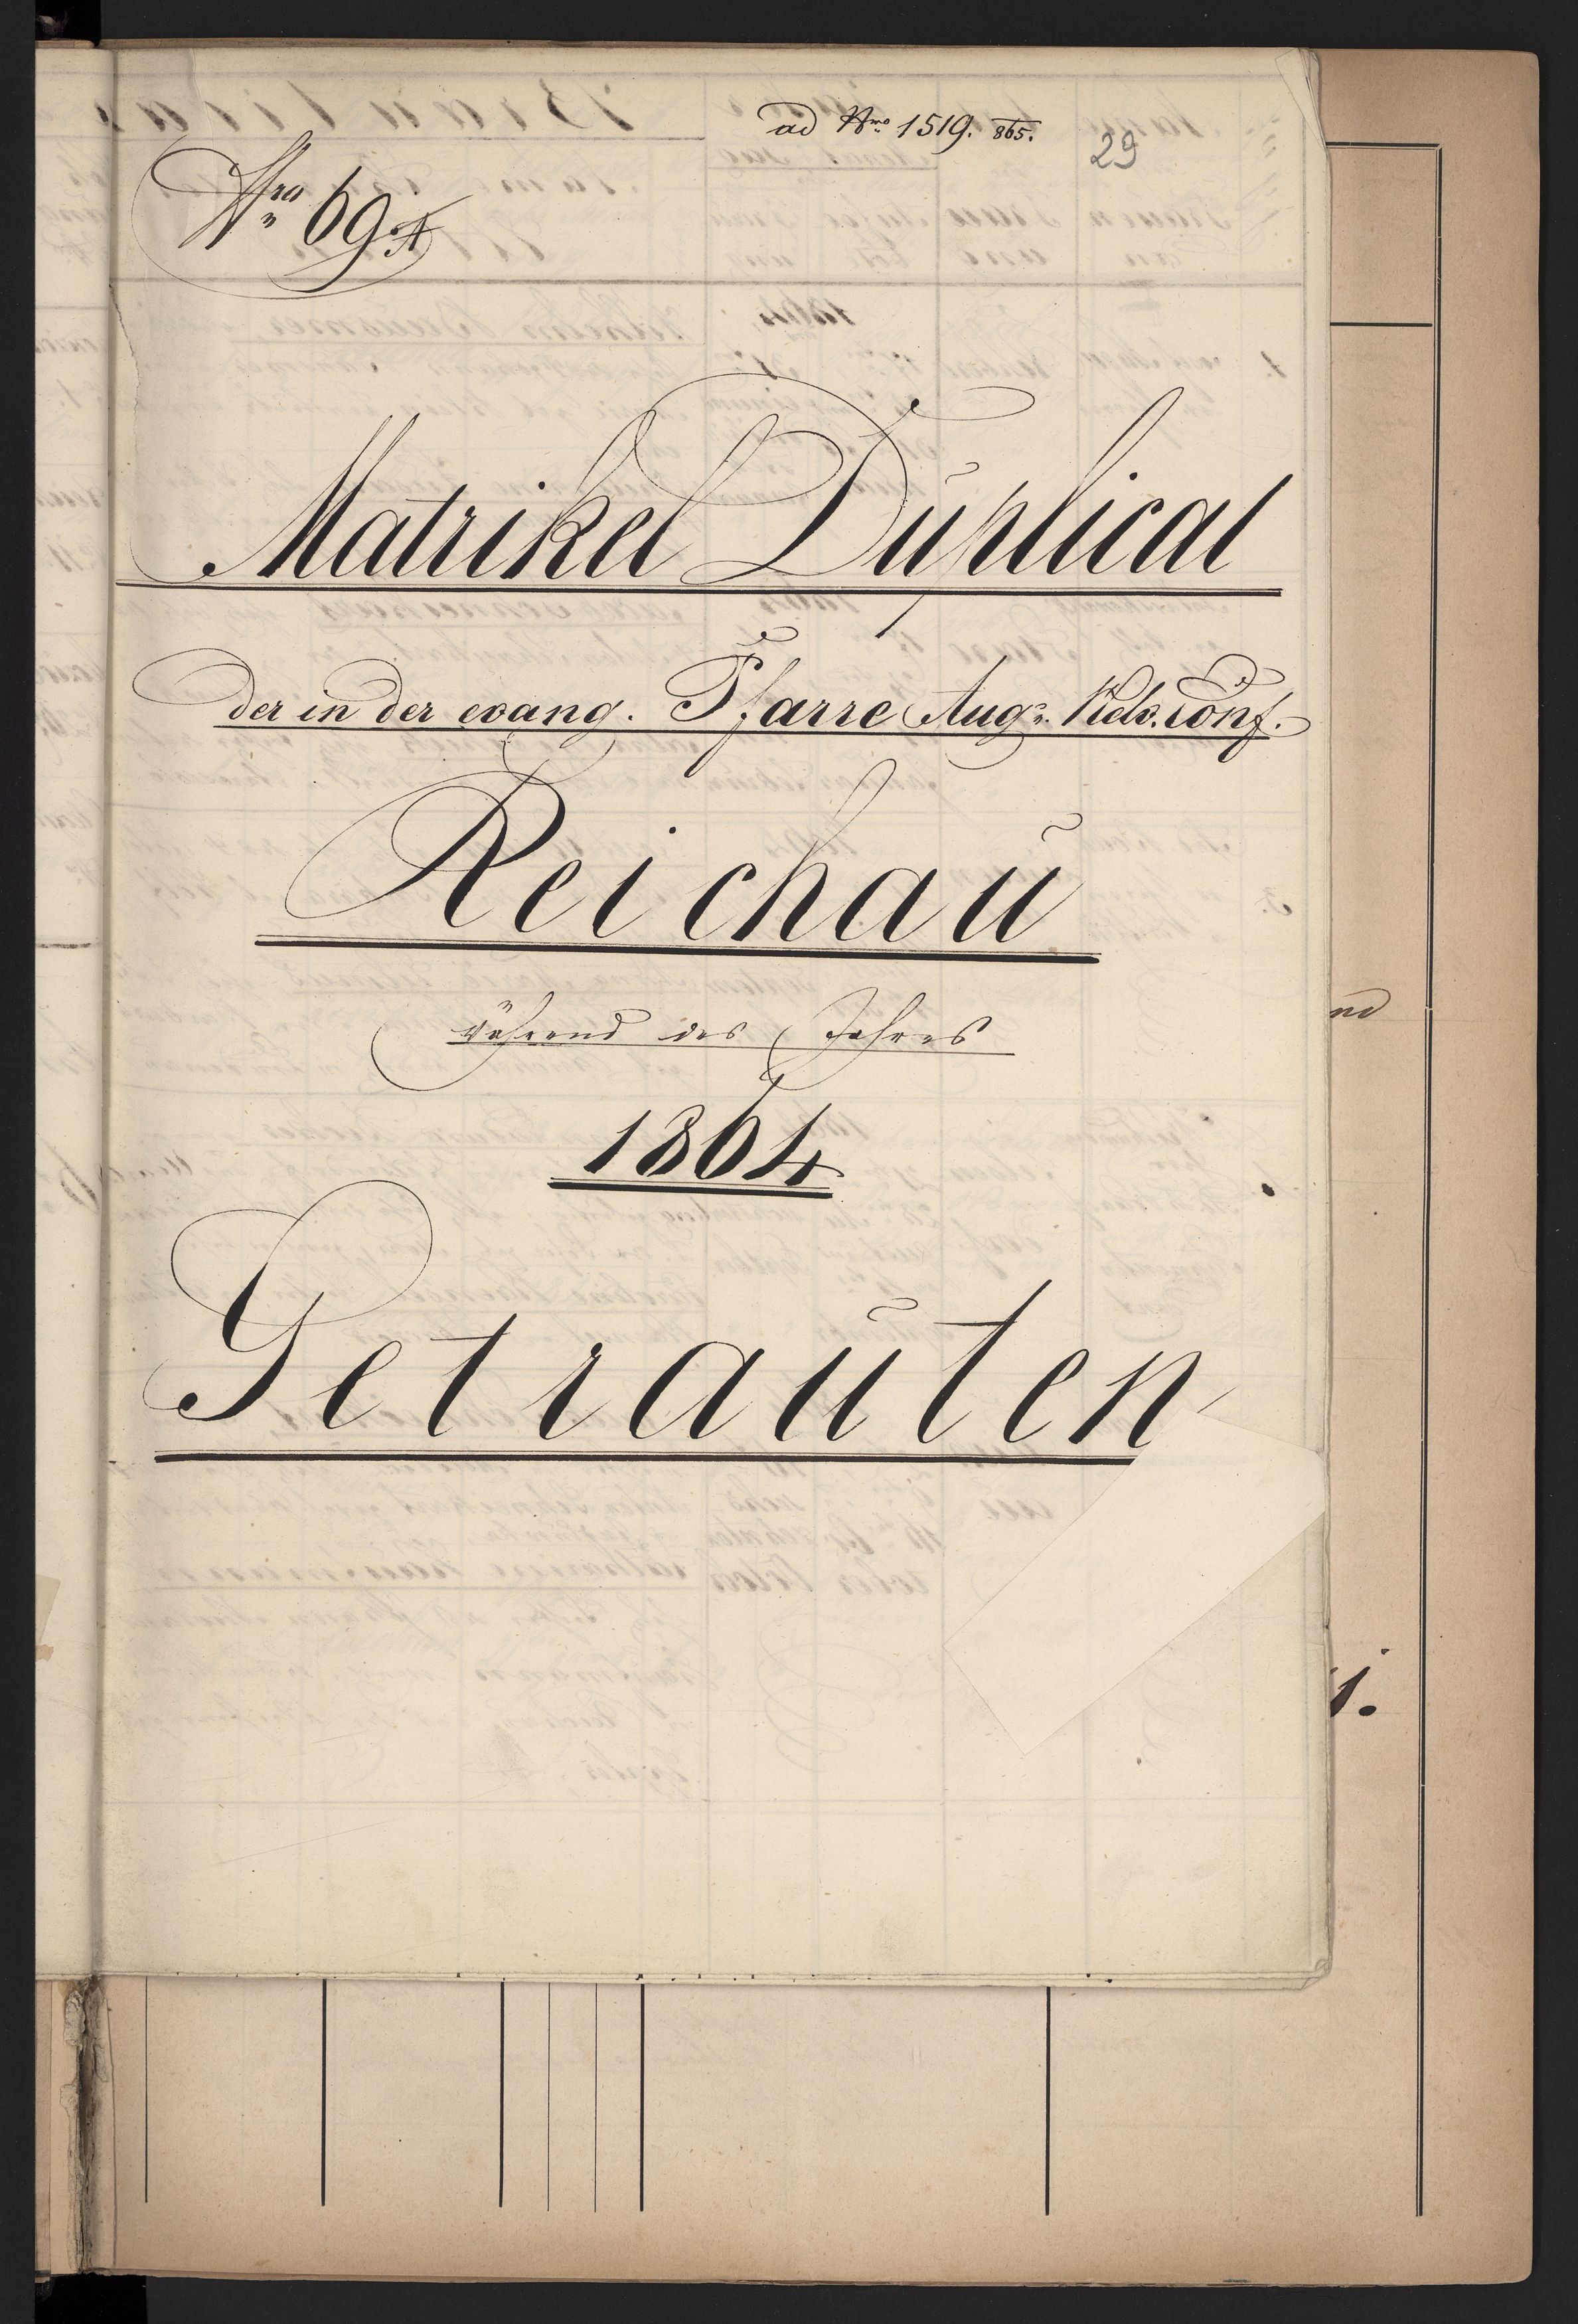 ad Nro 1519. 865.
29
Nro 69
Matrikel Duplicat
der in der evang. Pfarre Augs. Helv. Conf.
Reichau
während des Jahres
1864
Getrauten
nd
1.